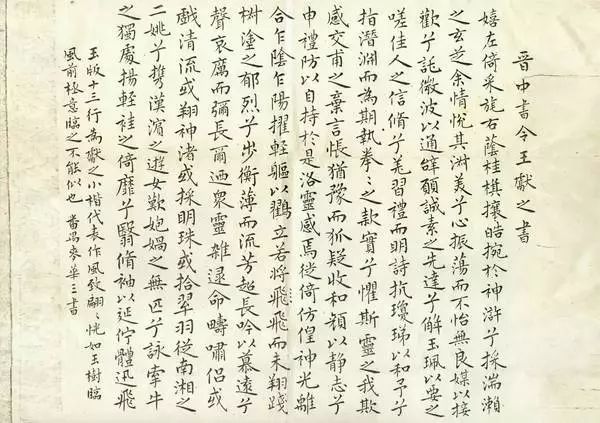 晋中書令王獻之書
嬉左倚采旄右蔭桂旗攘皓捥於神滸兮採湍瀨
之玄芝余情悅其淋美兮心振蕩而不怡無良媒以接
歡兮託微波以通辭願誠素之先達兮解玉珮以要之
嗟佳人之信脩兮羌習禮而明詩抗瓊珶以和予兮
指潛淵而為期執拳〻之款實兮懼斯靈之我欺
感交甫之棄言悵猶豫而狐疑收和顏以静志兮
申禮防以自持於是洛靈感焉徙倚仿偟神光離
合乍陰乍陽擢輕軀以鶴立若將飛飛而未翔踐
椒塗之郁烈兮步衡薄而流芳超長吟以慕遠兮
聲哀厲而彌長爾迺衆靈雜遝命疇嘯侶或
戲清流或翔神渚或採明珠或拾翠羽從南湘之
二姚兮攜漢濱之遊女歎匏媧之無匹兮詠牽牛
之獨處揚輕袿之倚靡兮翳脩袖以延佇體迅飛
玉版十三行為獻之小楷代表作風致翩〻恍如玉樹臨
風前極意臨之不能似也 番禺麥華三書